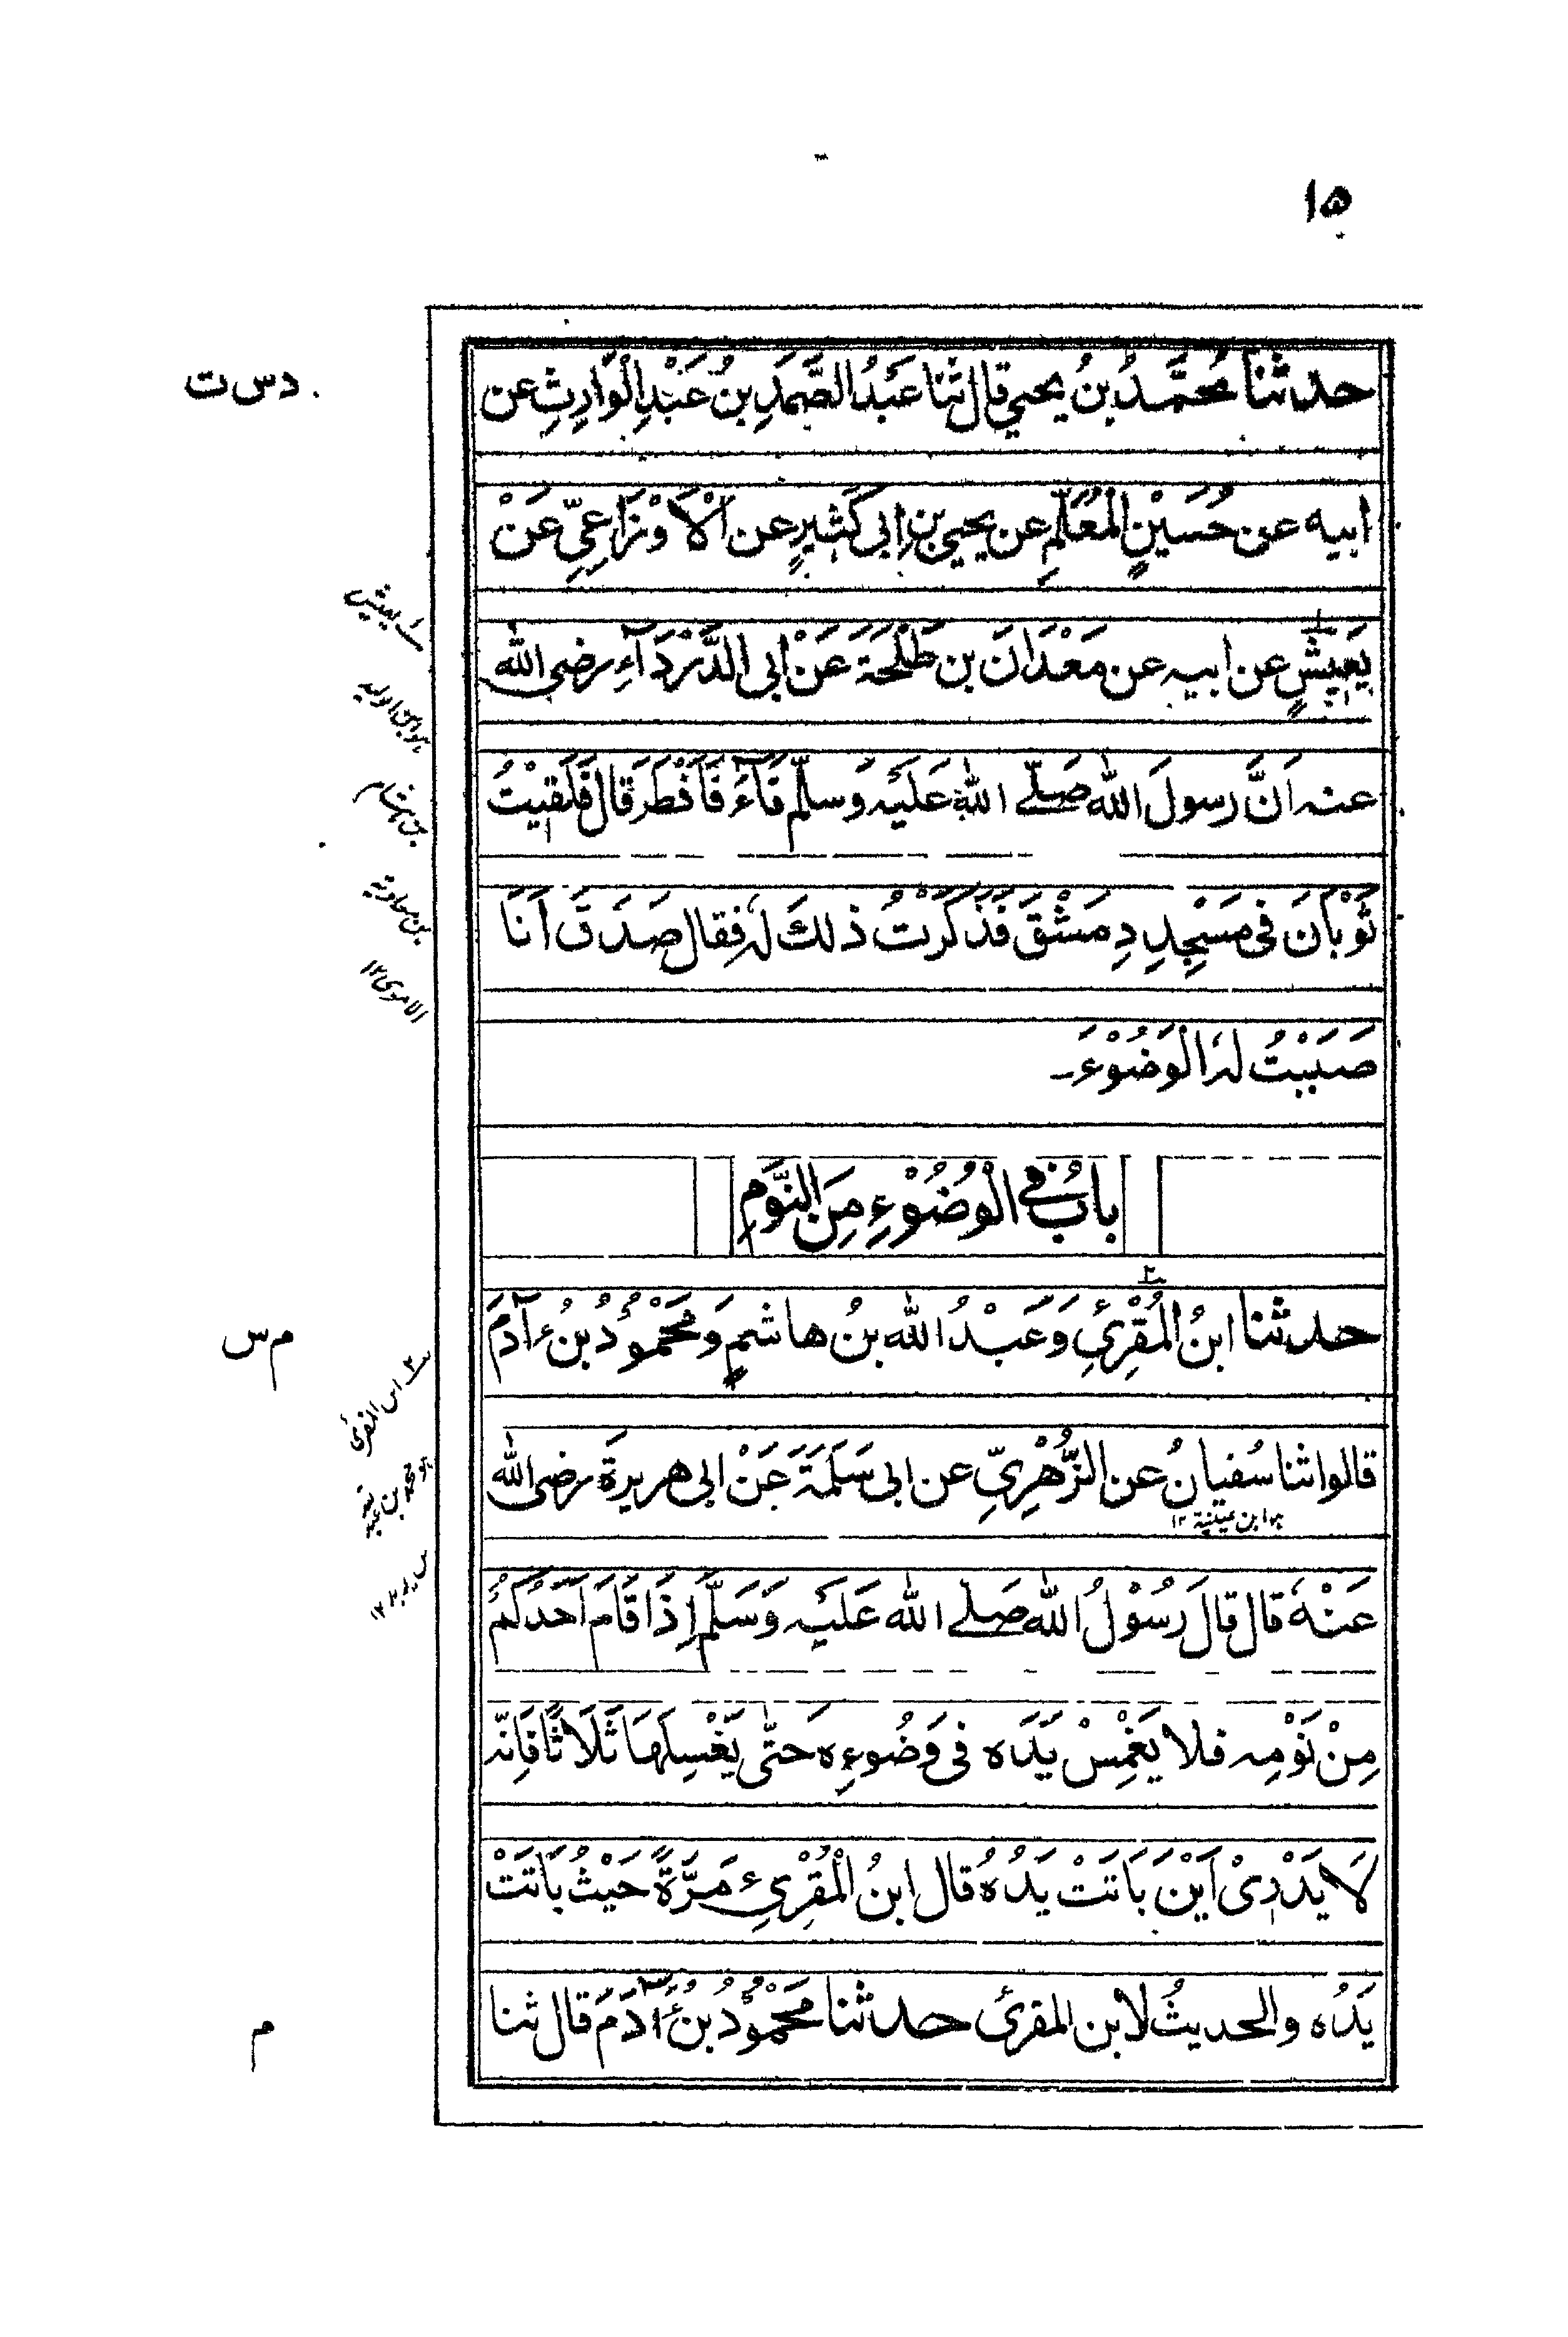 ١٥
حدثنا مُحَمَّدُ بنُ يحيي قال ثنا عَبْدُ الصَّمَدِ بنُ عَبْدِ الْوَارِثِ عن
د س ت
ابيه عن حُسَيْنٍ الْمُعَلِّمِ عن يحيي بنِ ابى كَثِيرٍ عن الْاَوْزَاعِيِّ عَنْ
يَعِيشٍ عن ابيه عن مَعْدَانَ بن طَلْحَةَ عَنْ ابى الدَّرْدَآءِ رضى الله
عنه اَنَّ رسولَ الله صَلّے الله عَلَيْه وَسلّم قَآءَ فَاَفْطَرَ قال فَلَقِيْتُ
ثَوْبَانَ فى مَسْجِدِ دِمَشْقَ فَذَكَرْتُ ذلكَ لهٗ فقال صَدَقَ اَنَا
صَبَبْتُ لهٗ الْوَضُوْءَ۔
١ يعيش
هو ابن الوليد
بن هشام
بن معاوية
الاموى ١٢
بابُ فى الْوُضُوْءِ مِنَ النَّوْمِ
حدثنا ابنُ الْمُقْرِئِ وَعَبْدُ الله بنُ هاشمٍ وَمَحْمُوْدُ بنُ ءآدَمَ
م س
قالوا ثنا سُفيانُ عن الزُّهْرِيِّ عن ابى سَلَمَةَ عَنْ ابى هريرةَ رضى الله
هو ابن عيينة ١٢
عَنْهٗ قال قال رَسُوْلُ الله صَلے الله عَلَيْه وَسَلَّمَ اِذَا قَامَ اَحَدُكُمْ
مِنْ نَوْمِه فلا يَغْمِسْ يَدَه فى وَضُوءِه حَتّٰى يَغْسِلَهَا ثَلَاثًا فَاِنّه
لَا يَدْرِىْ اَيْنَ بَاتَتْ يَدُهُ قال ابنُ الْمُقْرِئِ مَرَّةً حَيْثُ بَاتَتْ
يَدُه والحديثُ لابن المقرئ حدثنا مَحْمُوْدُ بنُ ءآدَمَ قال ثنا
م